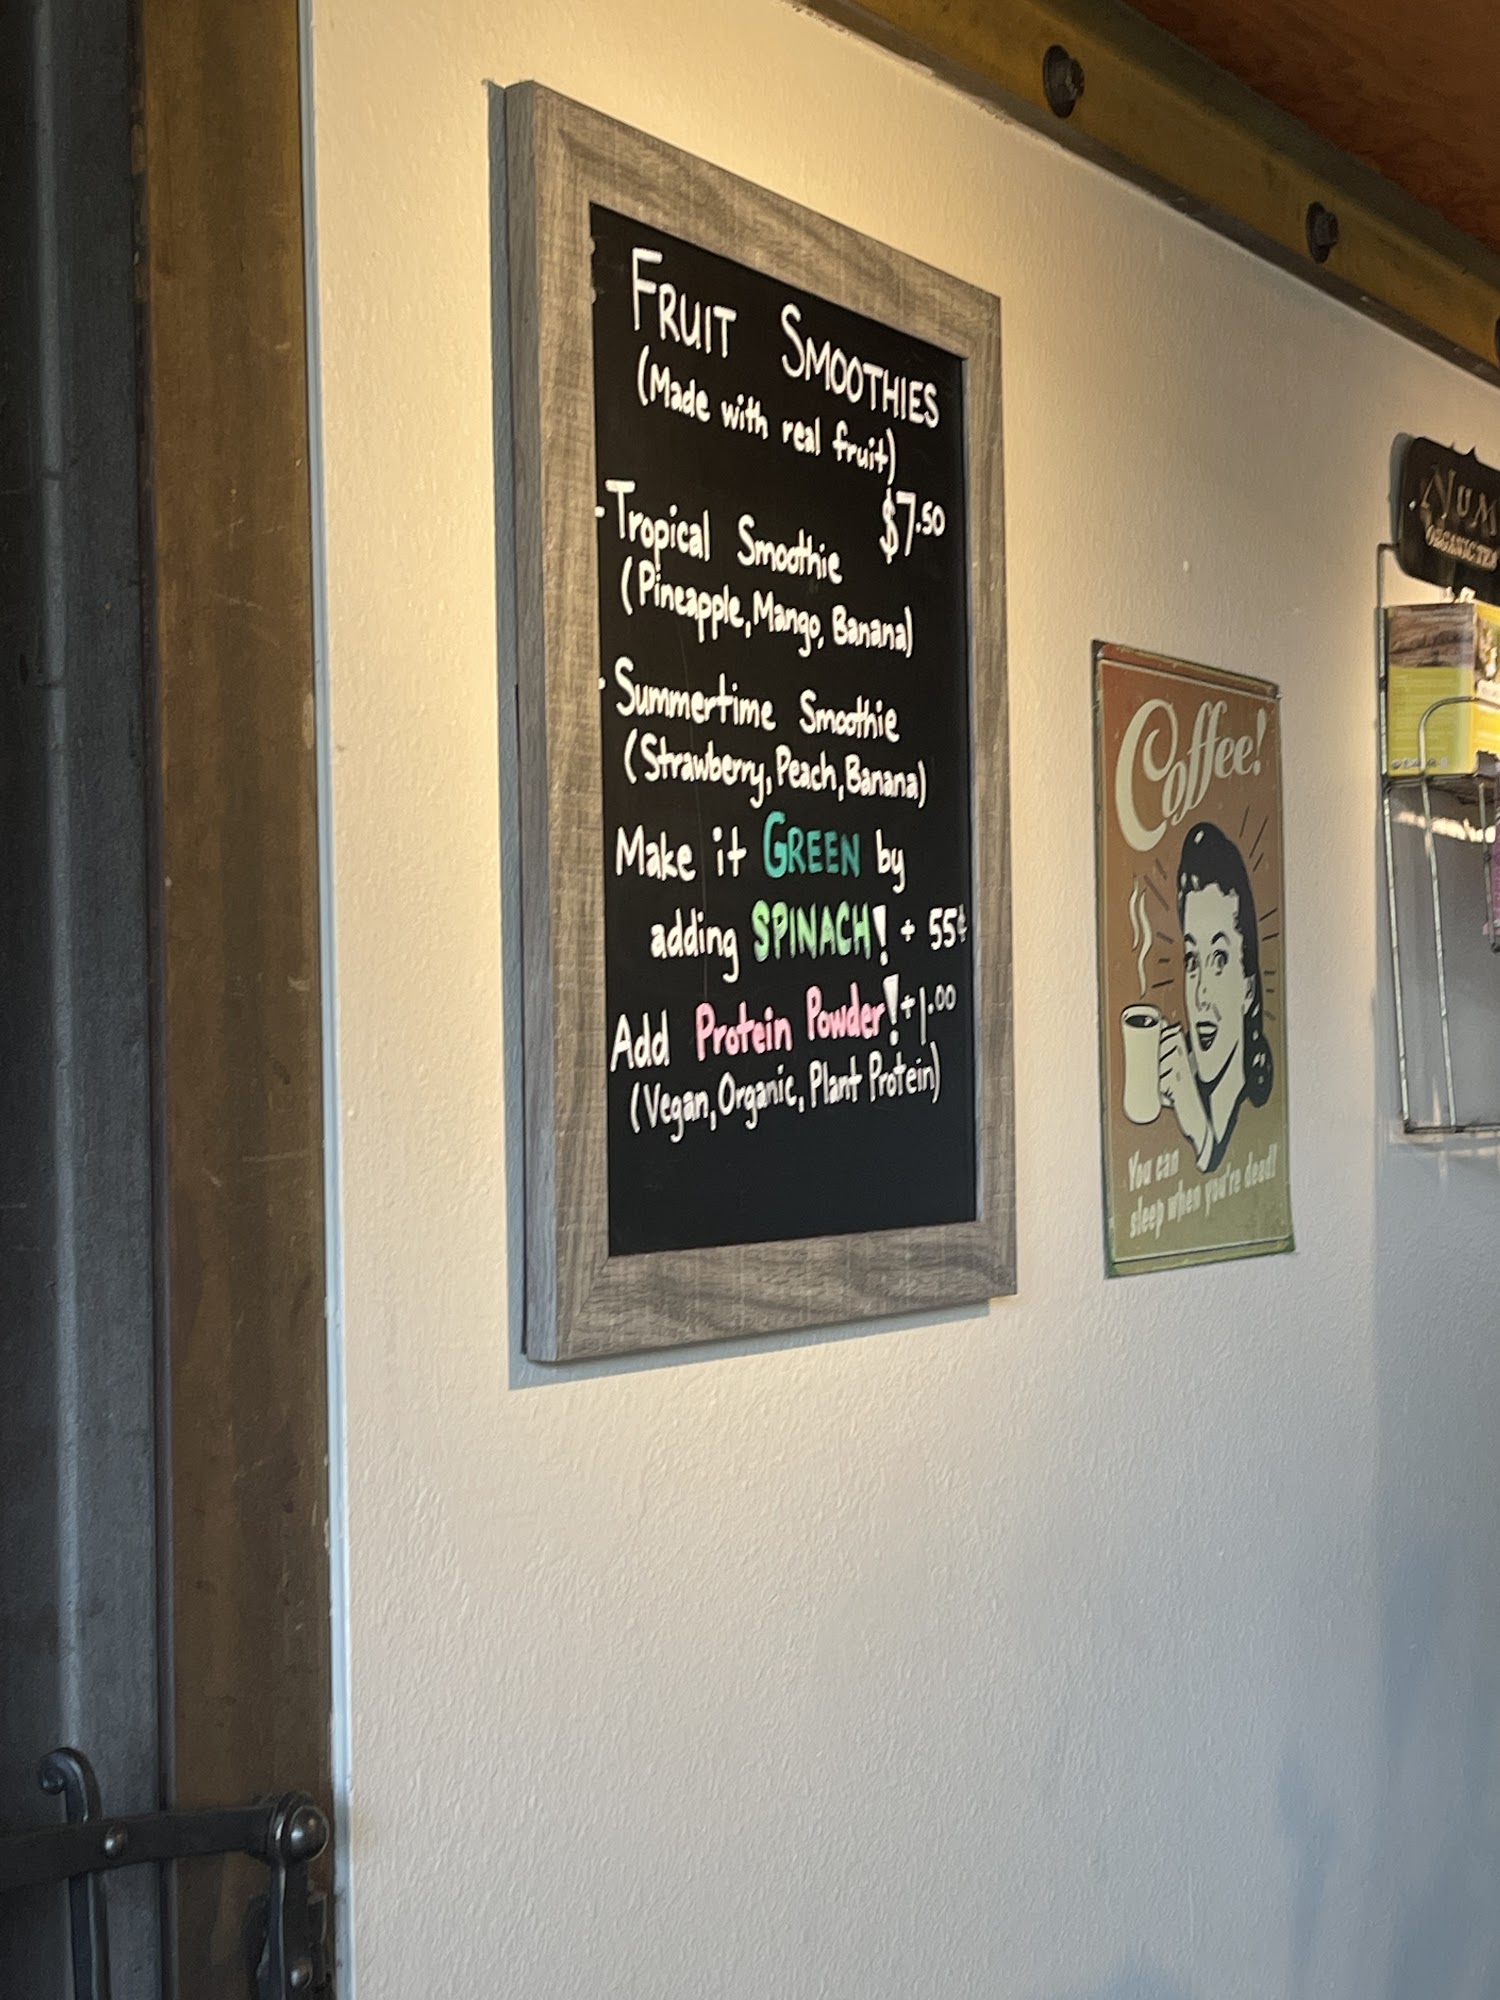 FRUIT SMOOTHIES
(Made with real fruit)
$7.50
-Tropical Smoothie
(Pineapple, Mango, Banana)
· Summertime Smoothie
(Strawberry, Peach, Banana)
Make it GREEN by
adding SPINACH! + 55¢
Add Protein Powder! +1.00
(Vegan, Organic, Plant Protein)
Coffee!
You can
sleep when you're dead!